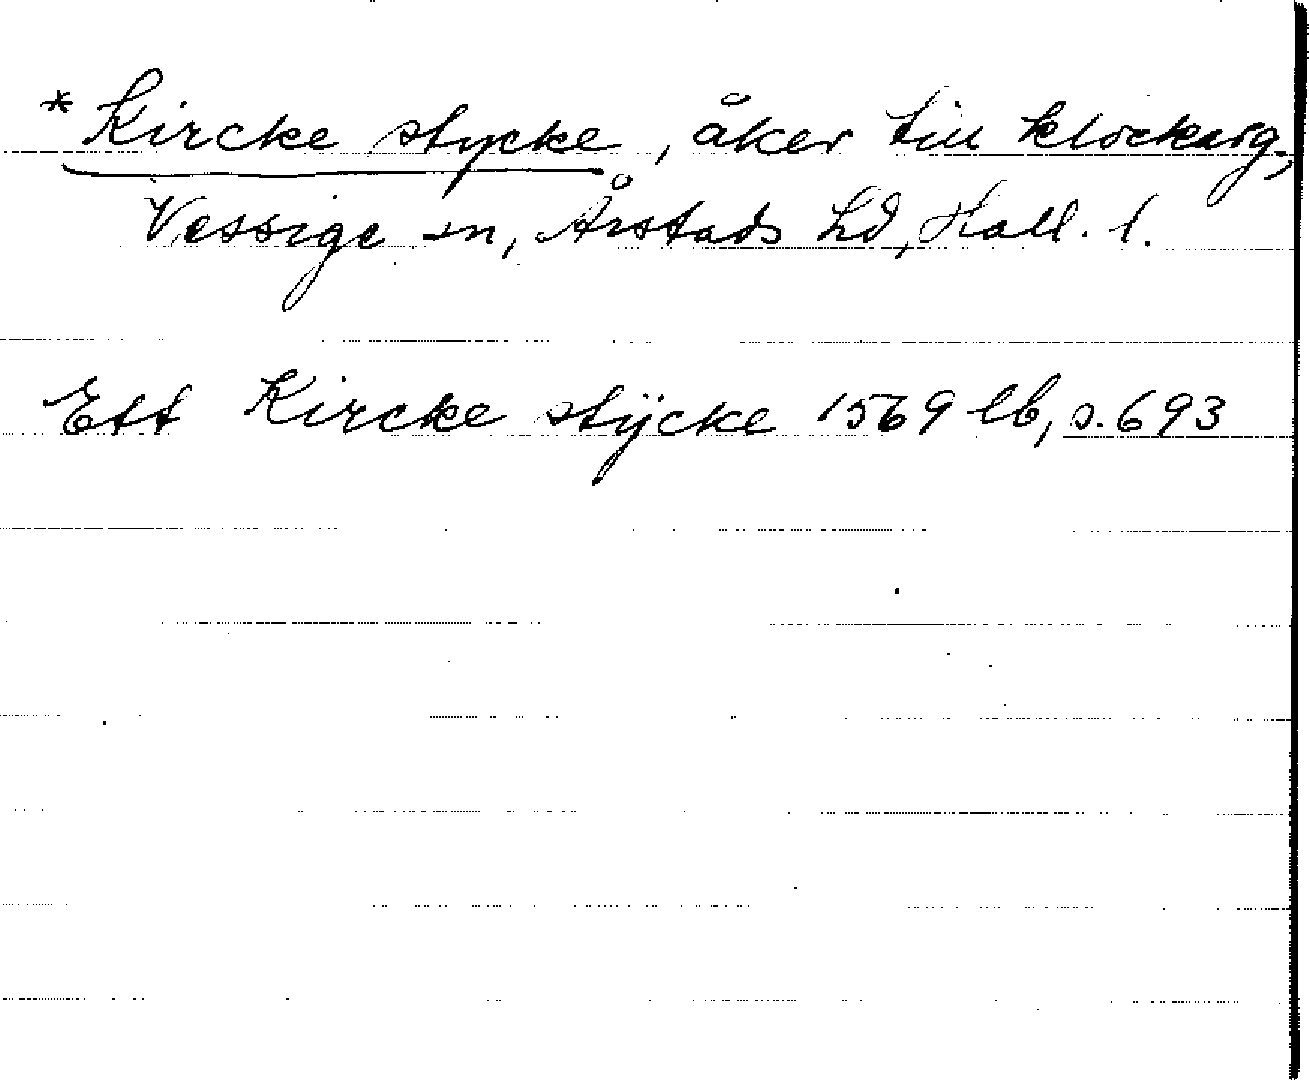 * Kircke stycke, åker till klockarg.,
Vessige sn, Årstads hd, Hall. l.
Ett Kircke stÿcke 1569 lb, s. 693